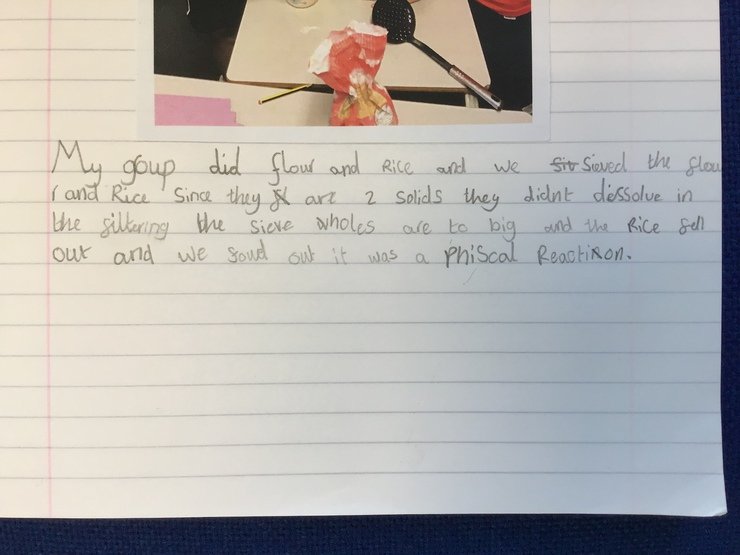 My goup did flour and Rice and we Sieved the flou
r and Rice Since they are 2 solids they didnt dissolve in
the filtering the sieve wholes are to big and the Rice fell
out and we foud out it was a Phiscal Reaction.